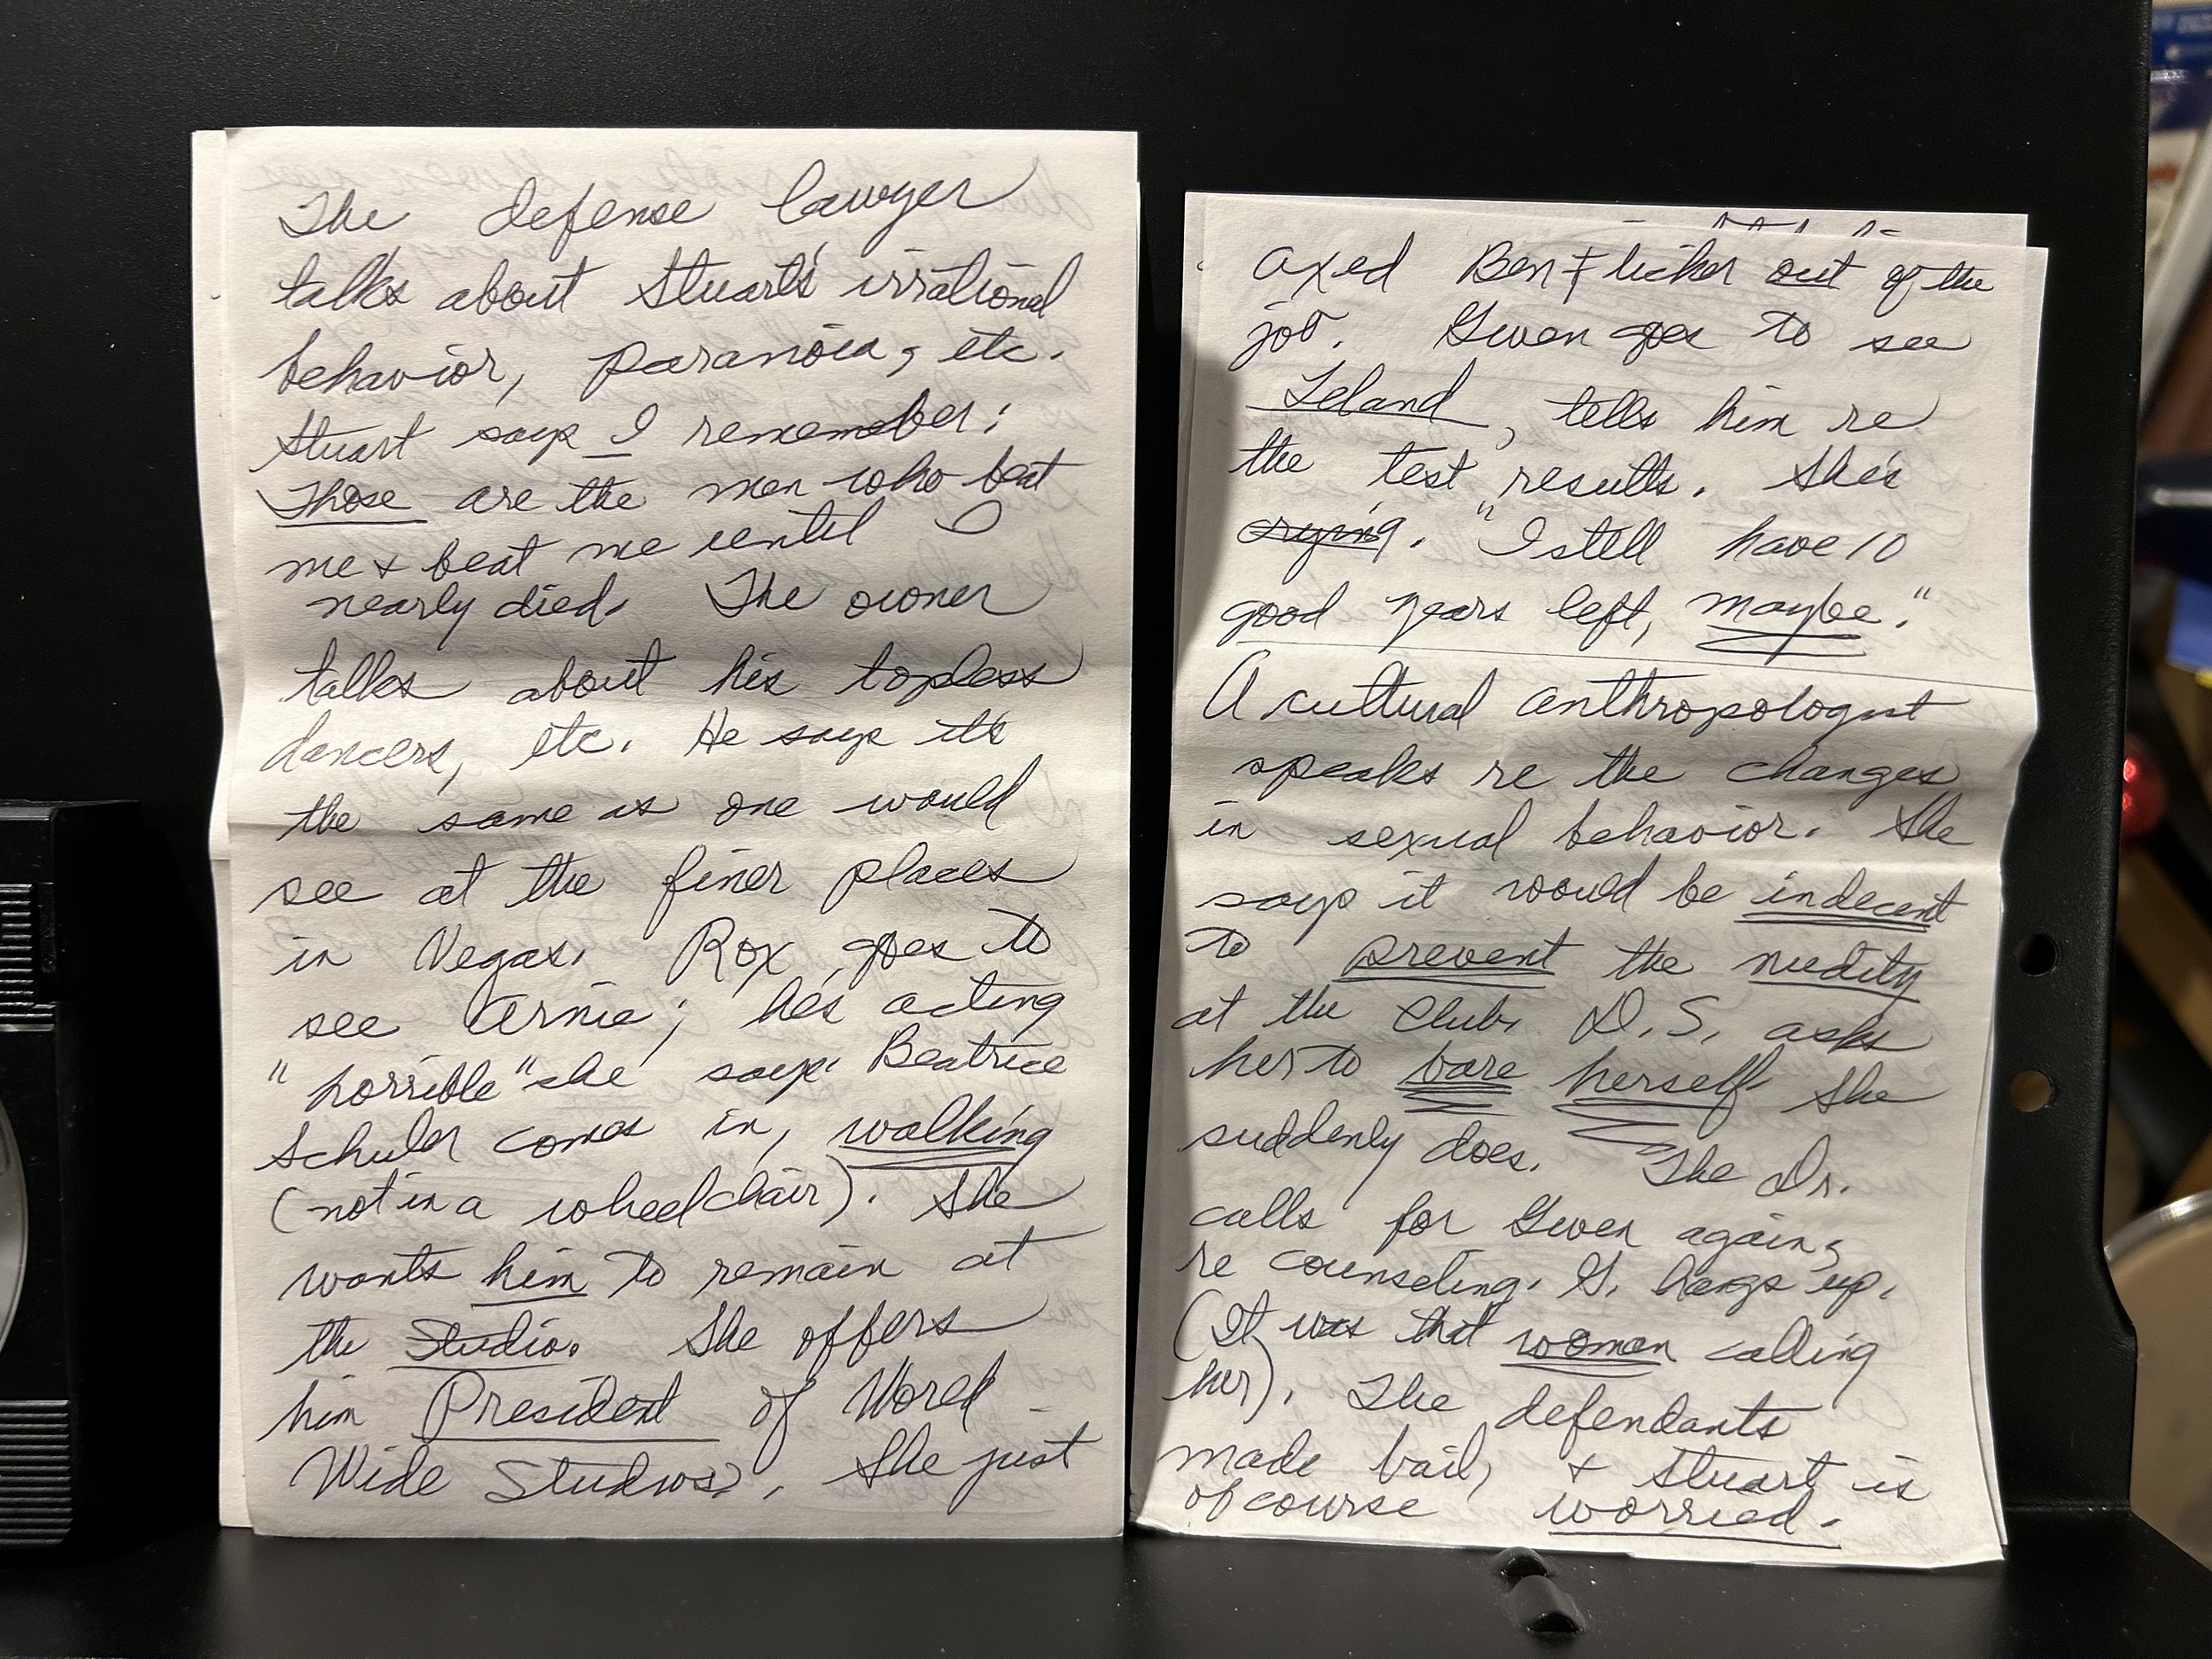 The defense lawyer
talks about Stuart's irrational
behavior, paranoia, etc.
Stuart says I remember:
Those are the men who beat
me + beat me until I
nearly died. The owner
talks about his topless
dancers, etc. He says it's
the same as one would
see at the finer places
in Vegas. Rox goes to
see Arnie; he's acting
"horrible" she says. Beatrice
Schuler comes in, walking
(not in a wheelchair). She
wants him to remain at
the Studio. She offers
him President of World-
Wide Studios. She just
axed Ben Flicker out of the
job. Gwen goes to see
Leland, tells him re
the test results. She's
crying. "I still have 10
good years left, maybe."
A cultural anthropologist
speaks re the changes
in sexual behavior. She
says it would be indecent
to prevent the nudity
at the Club. D.S. asks
her to bare herself. She
suddenly does. The Dr.
calls for Gwen again,
re counseling. G. hangs up.
(It was that woman calling
her). The defendants
made bail, + Stuart is
of course worried.